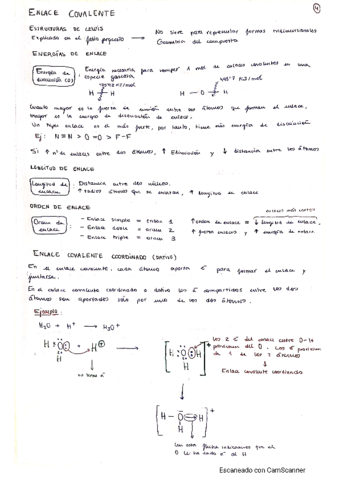 ENLACE COVALENTE
4
ESTRUCTURAS DE LEWIS
Explicado en el folio → No sirve para representar formas
Geometría del compuesto
ENERGÍAS DE ENLACE
Energía de disociación Energía necesaria para romper 1 mol de enlaces covalentes en una
especie gaseosa
H - H H - O - H
Cuanto mayor es la fuerza de unión entre los átomos que forman el enlace,
mayor es la energía de disociación de enlace.
Un triple enlace es el más fuerte, por tanto, tiene más energía de disociación
Ej: N≡N > O=O > F-F
Si ↑ nº de enlaces entre dos átomos, ↑ y ↓ distancia entre los átomos
LONGITUD DE ENLACE
Longitud de enlace: Distancia entre dos núcleos.
↑ átomos que se enlazan, ↑ longitud de enlace
ORDEN DE ENLACE
Orden de enlace: - Enlace simple = orden 1
- Enlace doble = orden 2
- Enlace triple = orden 3
↑ orden de enlace = ↓ longitud de enlace,
↑ fuerza enlace y ↑ energía de enlace
ENLACE COVALENTE COORDINADO (DATIVO)
En el enlace covalente, cada átomo aporta é para formar el enlace y
En el enlace covalente coordinado o dativo los é compartidos entre los dos
átomos son aportados sólo por uno de los dos átomos.
Ejemplo:
H₂O + H⁺ → H₃O⁺
Los 2 é del enlace entre O-H
del O. Los é
de 1 de los 2 átomos
↓
Enlace covalente coordinado
no tiene é
[H - O - H]⁺
H
Con esta flecha indicamos que el
O le ha dado é al H
Escaneado con CamScanner